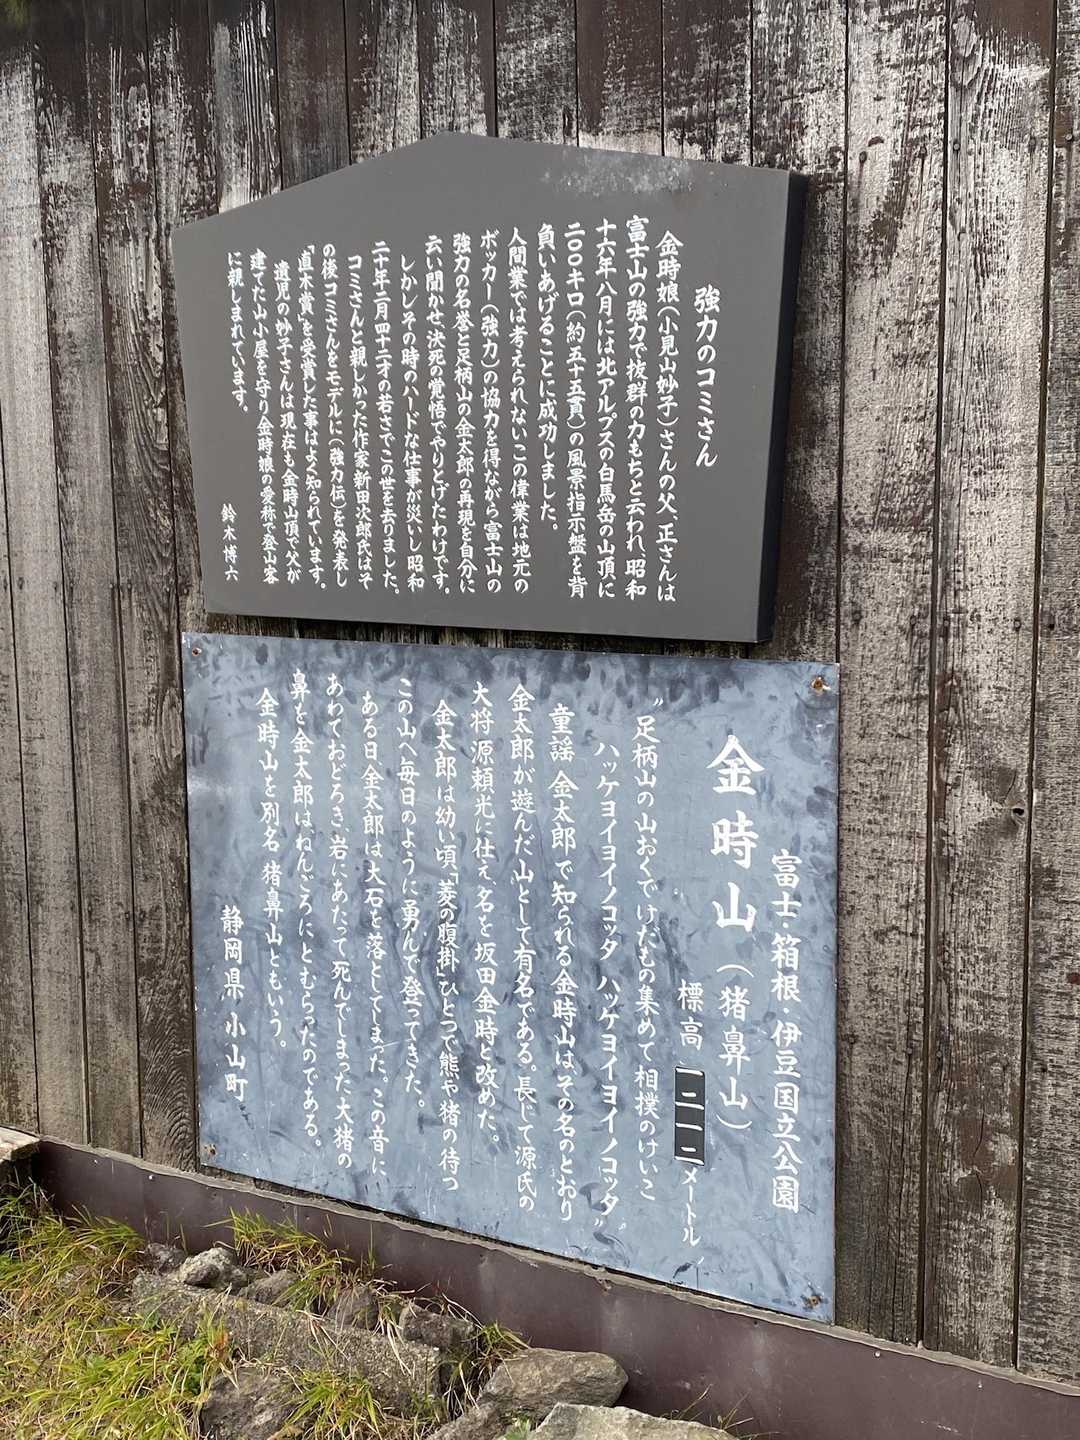 強力のコミさん
金時娘(小見山妙子)さんの父、正さんは
富士山の強力で抜群の力もちと云われ、昭和
十六年八月には北アルプスの白馬岳の山頂に
二〇〇キロ(約五十五貫)の風景指示盤を背
負いあげることに成功しました。
人間業では考えられないこの偉業は地元の
ボッカー(強力)の協力を得ながら富士山の
強力の名誉と足柄山の金太郎の再現を自分に
云い聞かせ、決死の覚悟でやりとげたわけです。
しかしその時のハードな仕事が災いし昭和
二十年二月四十二才の若さでこの世を去りました。
コミさんと親しかった作家新田次郎氏はそ
の後コミさんをモデルに(強力伝)を発表し
「直木賞」を受賞した事はよく知られています。
遺児の妙子さんは現在も金時山頂で父が
建てた山小屋を守り金時娘の愛称で登山客
に親しまれています。
鈴木博六
富士・箱根・伊豆国立公園
金時山(猪鼻山)
標高 一二一二メートル
〝足柄山の山おくでけだもの集めて相撲のけいこ
ハッケヨイヨイノコッタ ハッケヨイヨイノコッタ〟
童謡 金太郎で知られる金時山は、その名のとおり
金太郎が遊んだ山として有名である。長じて源氏の
大将 源頼光に仕え、名を坂田金時と改めた。
金太郎は幼い頃、「菱の腹掛」ひとつで熊や猪の待つ
この山へ毎日のように勇んで登ってきた。
ある日金太郎は大石を落としてしまった。この音に
あわておどろき、岩にあたって死んでしまった大猪の
鼻を金太郎はねんごろにとむらったのである。
金時山を別名 猪鼻山ともいう。
静岡県 小山町